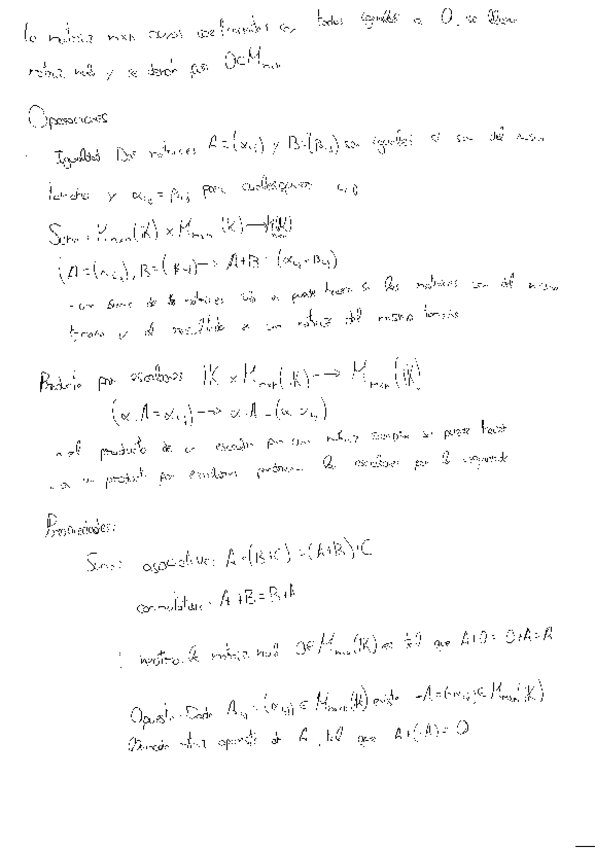 La matriz mxn cuyos coeficientes son todos iguales a 0, se llama
matriz nula y se denota por 0∈Mmxn
Operaciones
Igualdad Dos matrices A=(αij) y B=(βij) son iguales si son del mismo
tamaño y αij = βij para cualesquiera i,j
Suma: Mmxn(K) x Mmxn(K) → M(K)
(A=(αij), B=(βij) → A+B=(αij+βij)
- suma de matrices sólo se puede hacer si las matrices son del mismo
tamaño y el resultado es una matriz del mismo tamaño
Producto por escalares K x Mmxn(K) → Mmxn(K)
(α.A=αij) → α.A=(α.αij)
- el producto de un escalar por una matriz siempre se puede hacer
- en un producto por escalares los escalares por la izquierda
Propiedades:
Suma: asociativa: A+(B+C)=(A+B)+C
conmutativa: A+B=B+A
neutro: La matriz nula 0∈Mmxn(K) es tal que A+0=0+A=A
Opuesto: Dada Aij=(αij)∈Mmxn(K) existe -A=(-αij)∈Mmxn(K)
llamada matriz opuesta de A, tal que A+(-A)=0